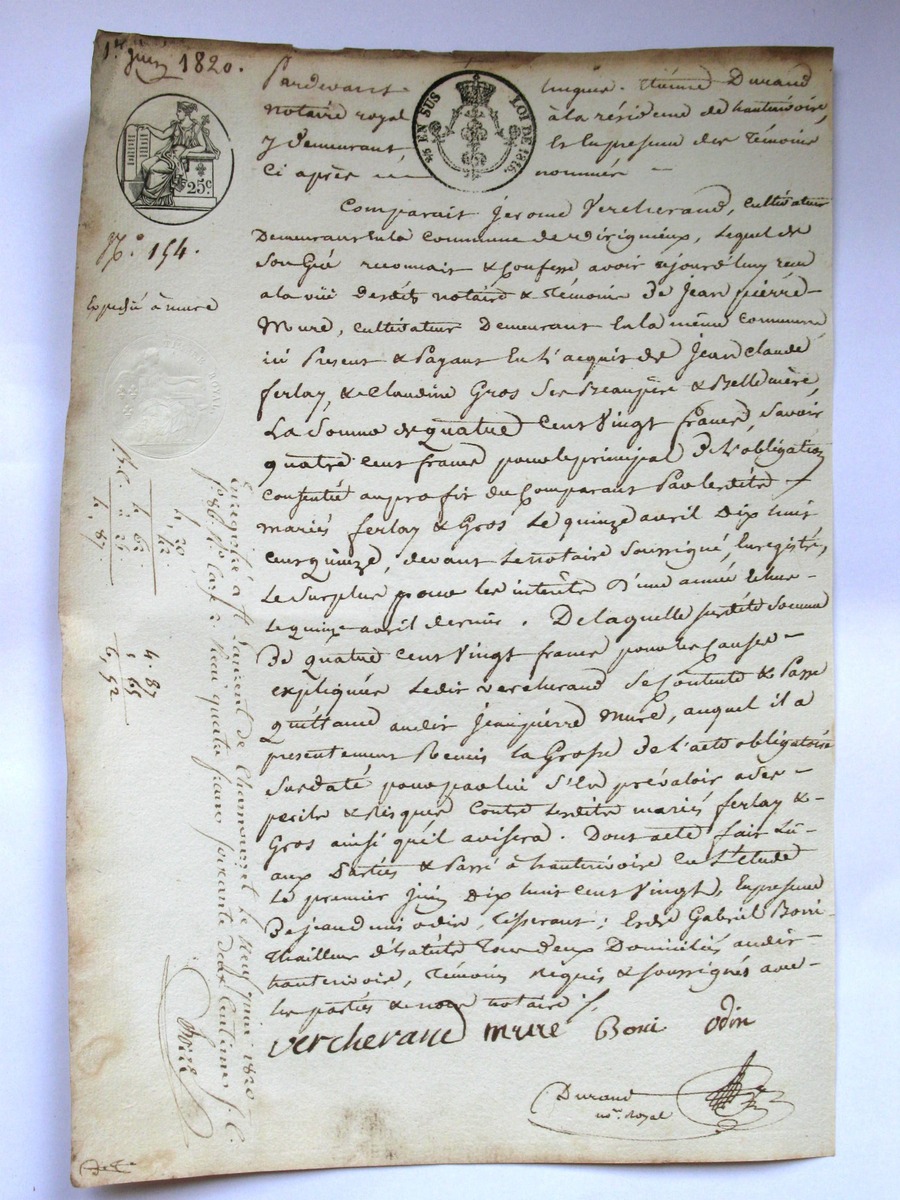 1er juin 1820.
25c.
5/5 EN SUS LOI DE 1816.
N.° 154.
Expédié à mure
Pardevant Etienne Durand
notaire royal à la résidence de hauterivoire,
y demeurant, & En presence des Témoins
Ci après nommés
Comparait Jérome Vercherand, cultivateur
Demeurant En la commune de , Lequel de
Son Gré reconnait & Confesse avoir aujourd'huy reçu
a la vüe desdits notaire & Témoins De Jean pierre
Mure, cultivateur Demeurant En la même commune,
ici Present & Payant En l'acquit de Jean Claude
ferlay, & Claudine Gros Ses Beaupère & Bellemère,
La Somme de quatre Cent Vingt francs, Savoir
quatre cent francs pour le principal de l'obligation
Consentie au profit du Comparant Par lesdits
mariés ferlay & Gros Le quinze avril Dix huit
cent quinze, devant Le notaire Soussigné, Enregistrée,
Le Surplus pour les intérêts d'une année Echue
Le quinze avril dernier. De laquelle susdite Somme
De quatre Cent Vingt francs pour les Causes
expliquées Ledit Vercherand Se Contente & Passe
Quittance audit Jean pierre Mure, auquel il a
présentement Remis La Grosse de l'acte obligatoire
Sus daté pour par lui S'En prévaloir a Ses
perils & Risques Contre Lesdits mariés ferlay &
Gros ainsi qu'il avisera. Dont acte fait Lû
aux Parties & Passé à hauterivoire En l'Etude
Le premier juin Dix huit cent Vingt, En presence
De jean odin, Tisserant; & de Gabriel Boni
Thailleur d'habits Tous deux Domiciliés audit
hauterivoire, Témoins Requis & Soussignés avec
les parties & nous notaire
Vercherand mure Boni odin
Durand
no.re Royal
Enregistré à St Laurent de Chamousset le neuf juin 1820
f° 86 Reçu quatre francs soixante deux Centimes S. C.
4. 20
4. 87
4. 87
1. 65
6, 52